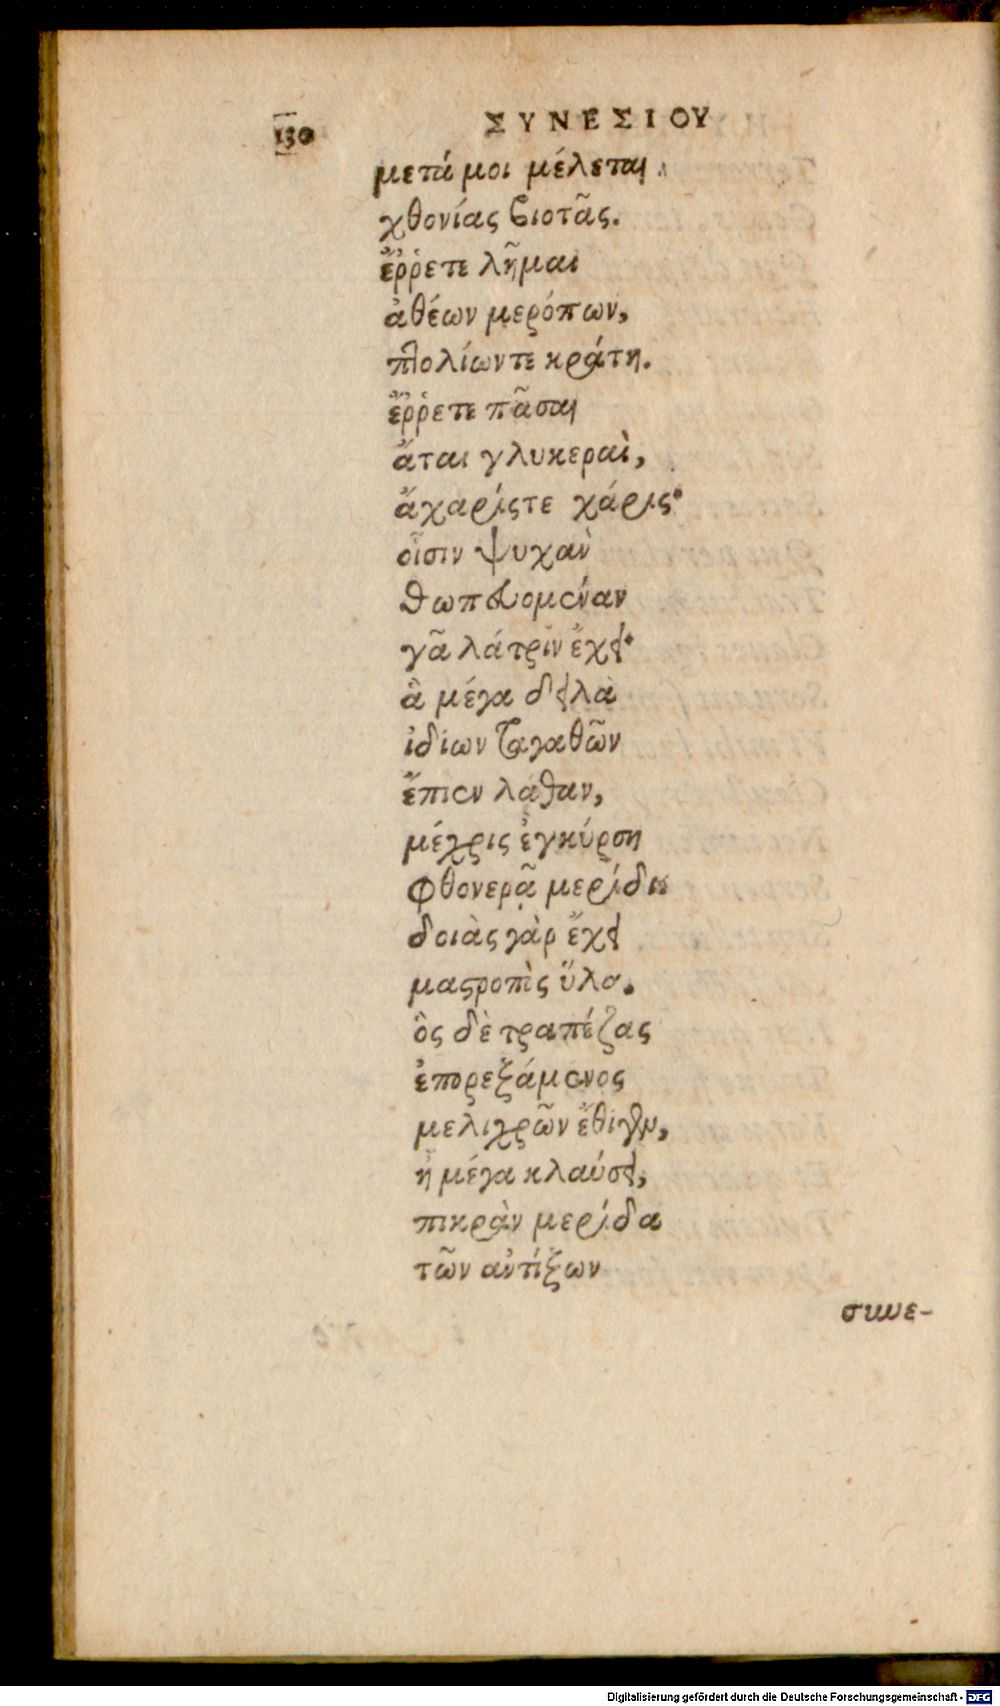 130 ΣΥΝΕΣΙΟΥ
μετά μοι μέλεται
χθονίας βιοτᾶς.
ἔῤῥετε λῆμαι
ἀθέων μερόπων,
πολίωντε κράτη.
ἔῤῥετε πᾶσαι
ἄται γλυκεραὶ,
ἄχαρίς τε χάρις·
οἷσιν ψυχὰν
θωπευομέναν
γᾶ λάτριν ἔχει·
ἃ μέγα δειλὰ
ἰδίων τἀγαθῶν
ἔπιεν λάθαν,
μέχρις ἐγκύρση
φθονερᾷ μερίδι
δοιὰς γὰρ ἔχει
μαστροπὶς ὕλα.
ὃς δὲ τραπέζας
ἐπορεξάμενος
μελιχρῶν ἔθιγεν,
ἦ μέγα κλαύσει,
πικρὰν μερίδα
τῶν ἀντίξων
συνε-
Digitalisierung gefördert durch die Deutsche Forschungsgemeinschaft - DFG